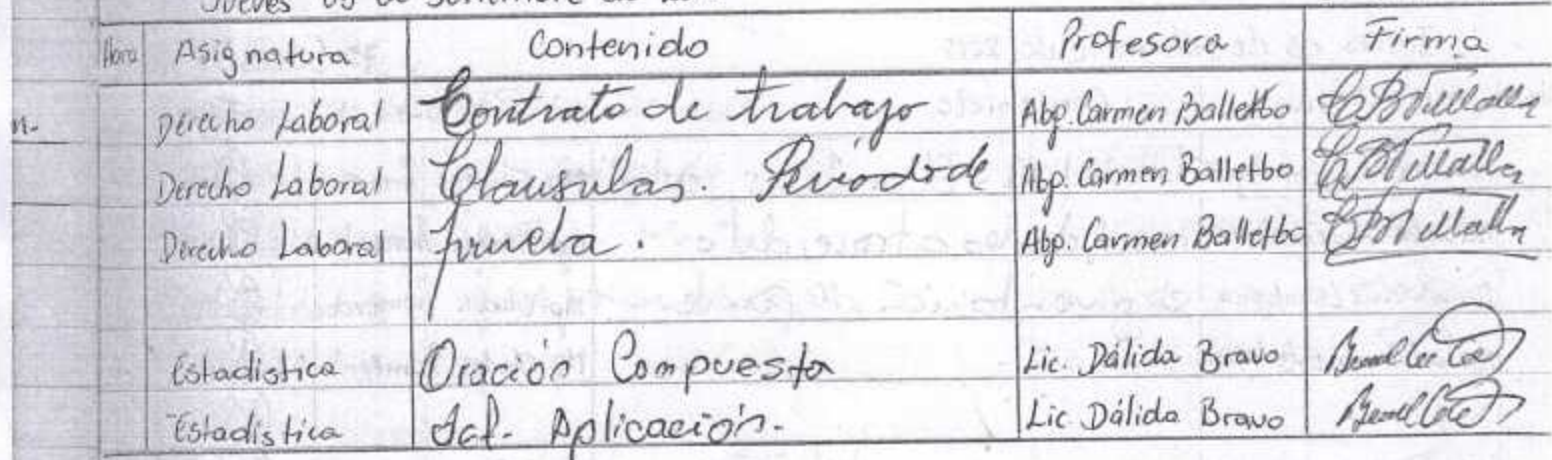 Jueves 03 de Setiembre de
Hora Asignatura Contenido Profesora Firma
Derecho Laboral Contrato de trabajo Abg. Carmen Balletbo
Derecho Laboral Clausulas. Periodo de Abg. Carmen Balletbo
Derecho Laboral prueba. Abg. Carmen Balletbo
Estadistica Oración Compuesta Lic. Dálida Bravo
Estadistica Aplicación. Lic. Dálida Bravo